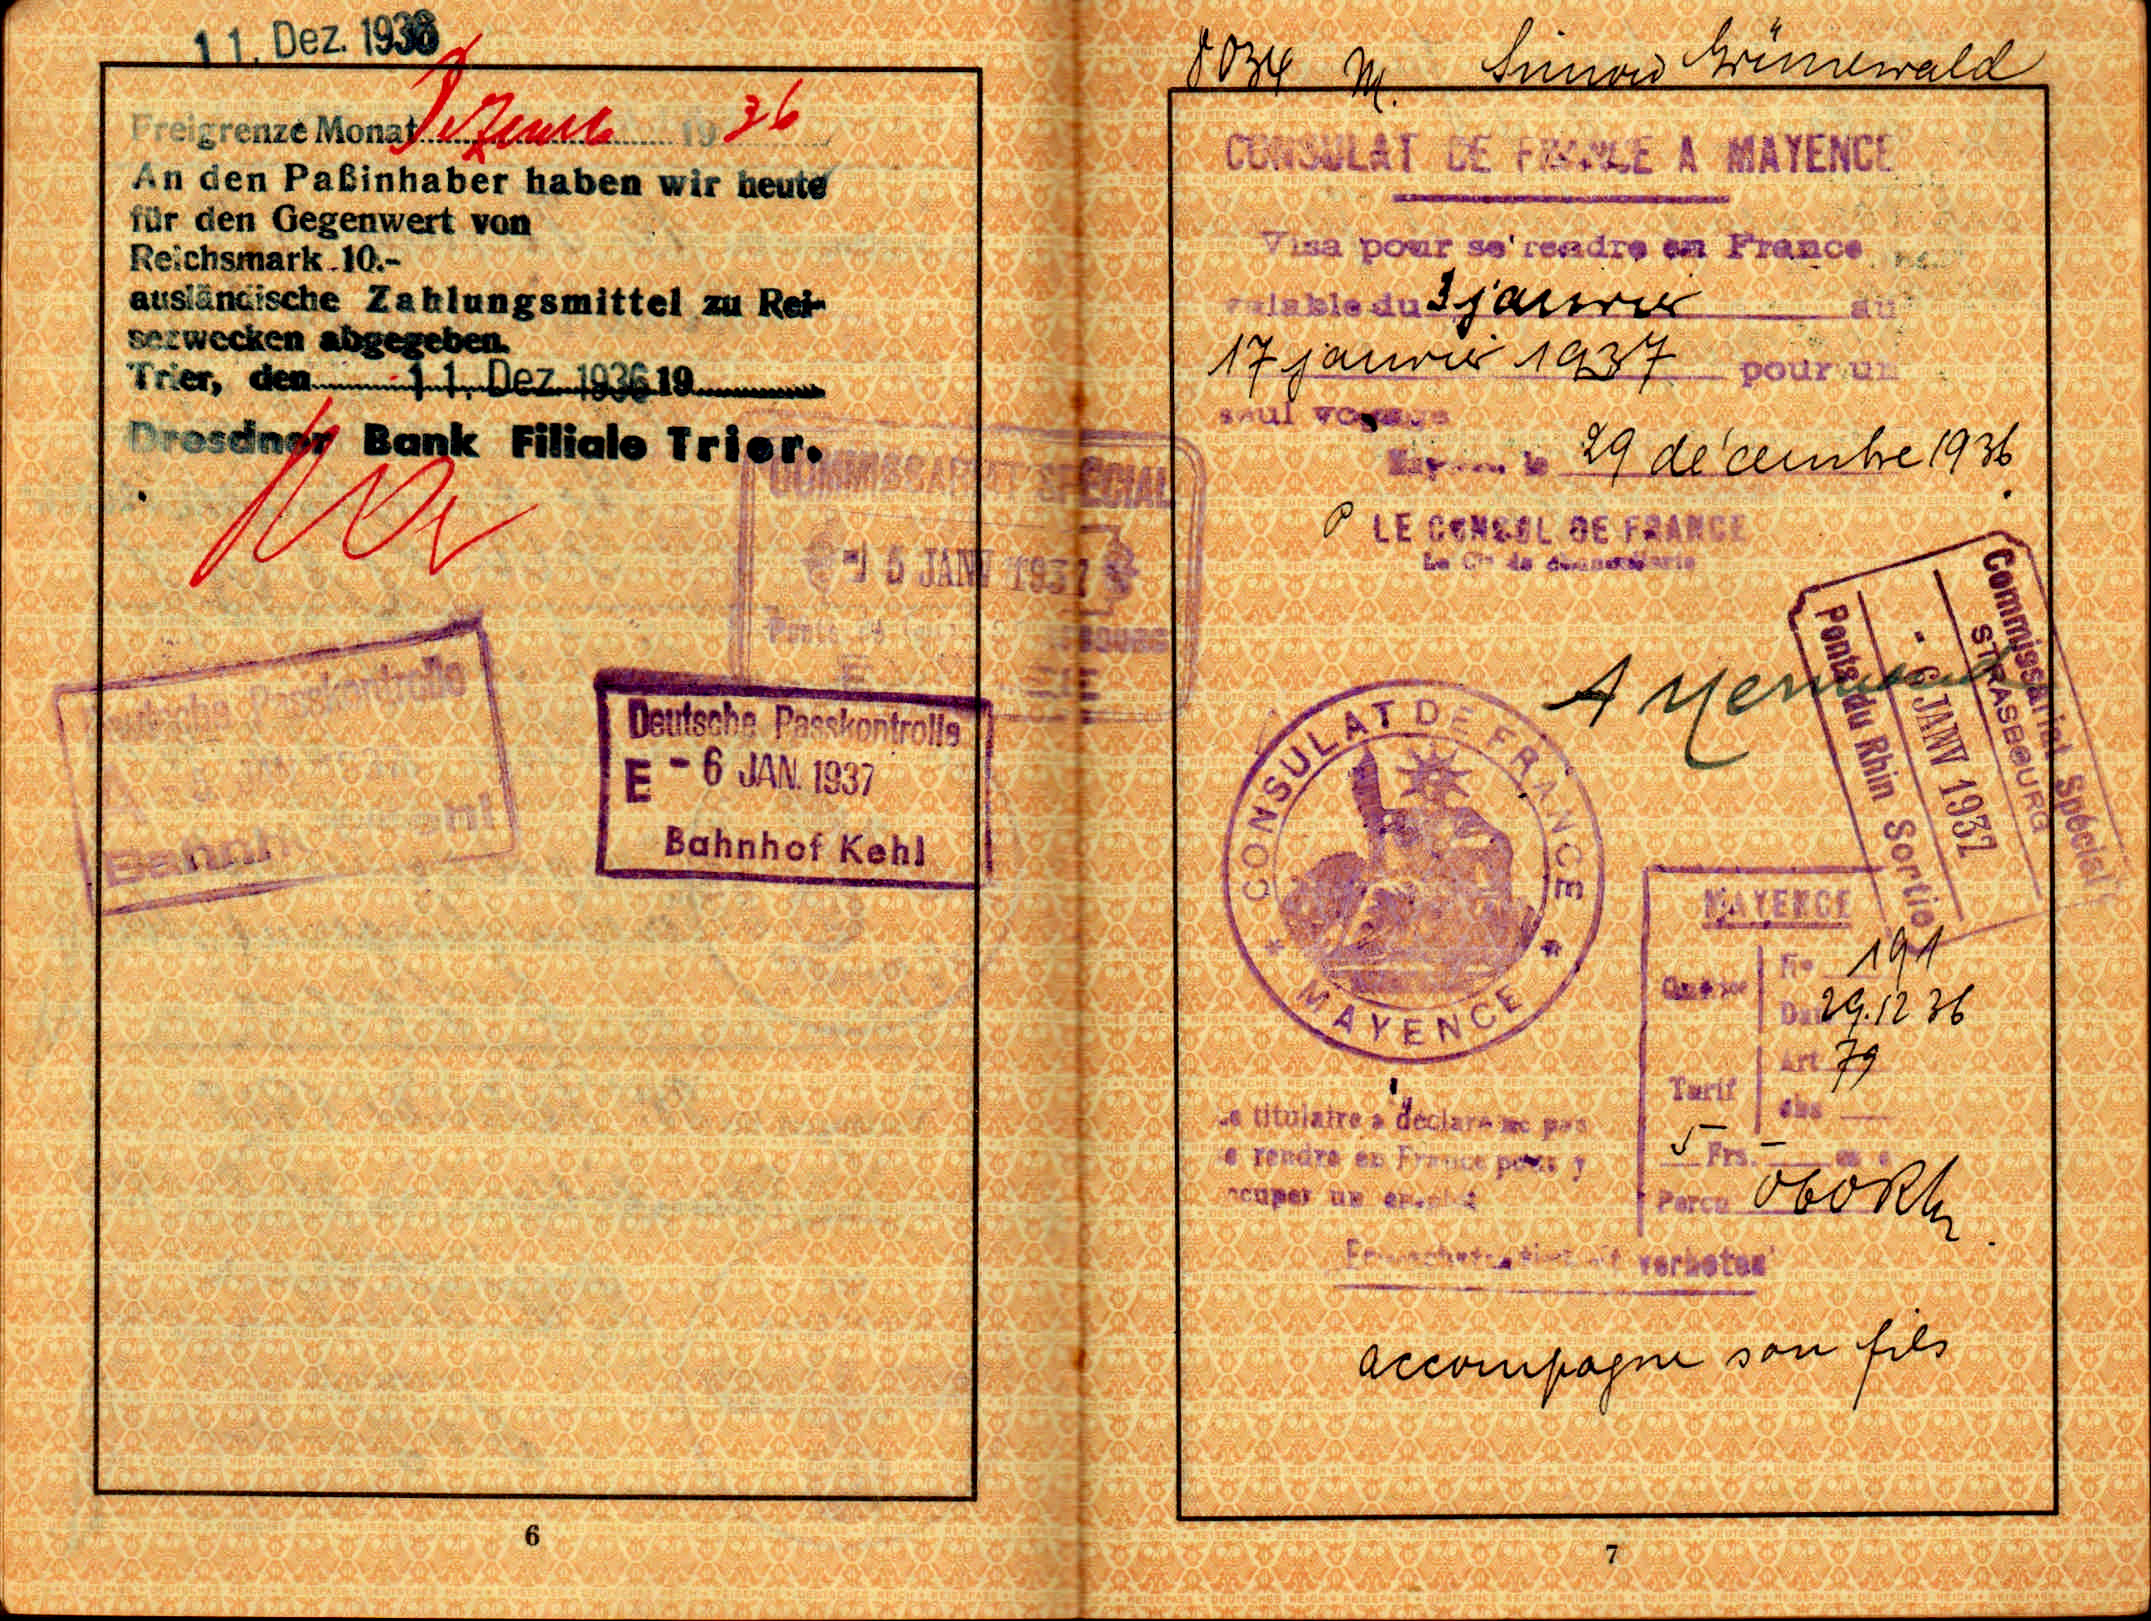 11. Dez. 1936
Freigrenze Monat Dezemb 1936
An den Paßinhaber haben wir heute
für den Gegenwert von
Reichsmark 10.-
ausländische Zahlungsmittel zu Rei-
sezwecken abgegeben.
Trier, den 11. Dez. 1936 19
Dresdner Bank Filiale Trier.
COMMISSARIAT SPÉCIAL
- 5 JANV 1937
Deutsche Passkontrolle
A - 5 JAN. 1937
Bahnhof Kehl
Deutsche Passkontrolle
E - 6 JAN. 1937
Bahnhof Kehl
6
8034 M. Simon Grünewald
CONSULAT DE FRANCE A MAYENCE
Visa pour se rendre en France
valable du 3 janvier au
17 janvier 1937 pour un
seul voyage
Mayence le 29 décembre 1936
P LE CONSUL DE FRANCE
Commissariat Spécial
STRASBOURG
- 6 JANV 1937
Ponts du Rhin Sortie
CONSULAT DE FRANCE
* MAYENCE *
MAYENCE
No 191
Date 29.12 36
Tarif
Art 79
5 Frs.
Percu 060 Rm
Le titulaire a déclaré ne pas
se rendre en France pour y
occuper un emploi
verboten
accompagne son fils
7